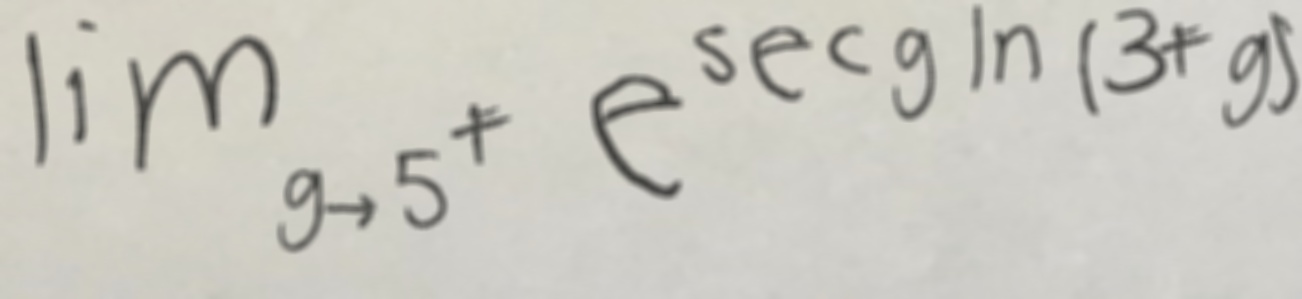 lim_{g→5^+} e^{sec g ln (3+g)}